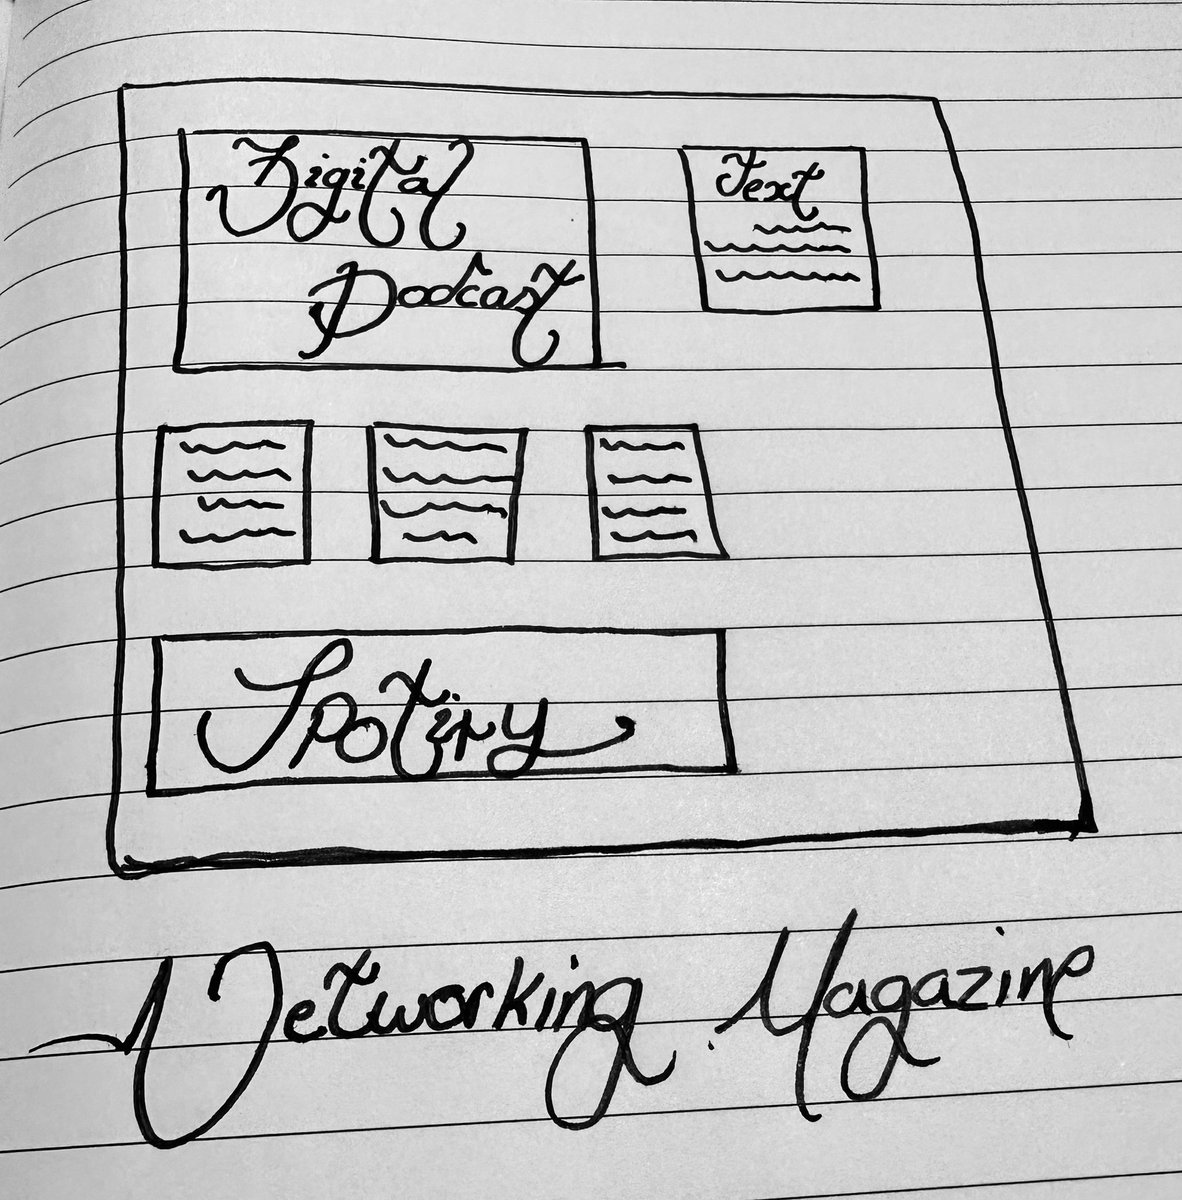 Digital
Podcast
Text
Spotify
Networking Magazine